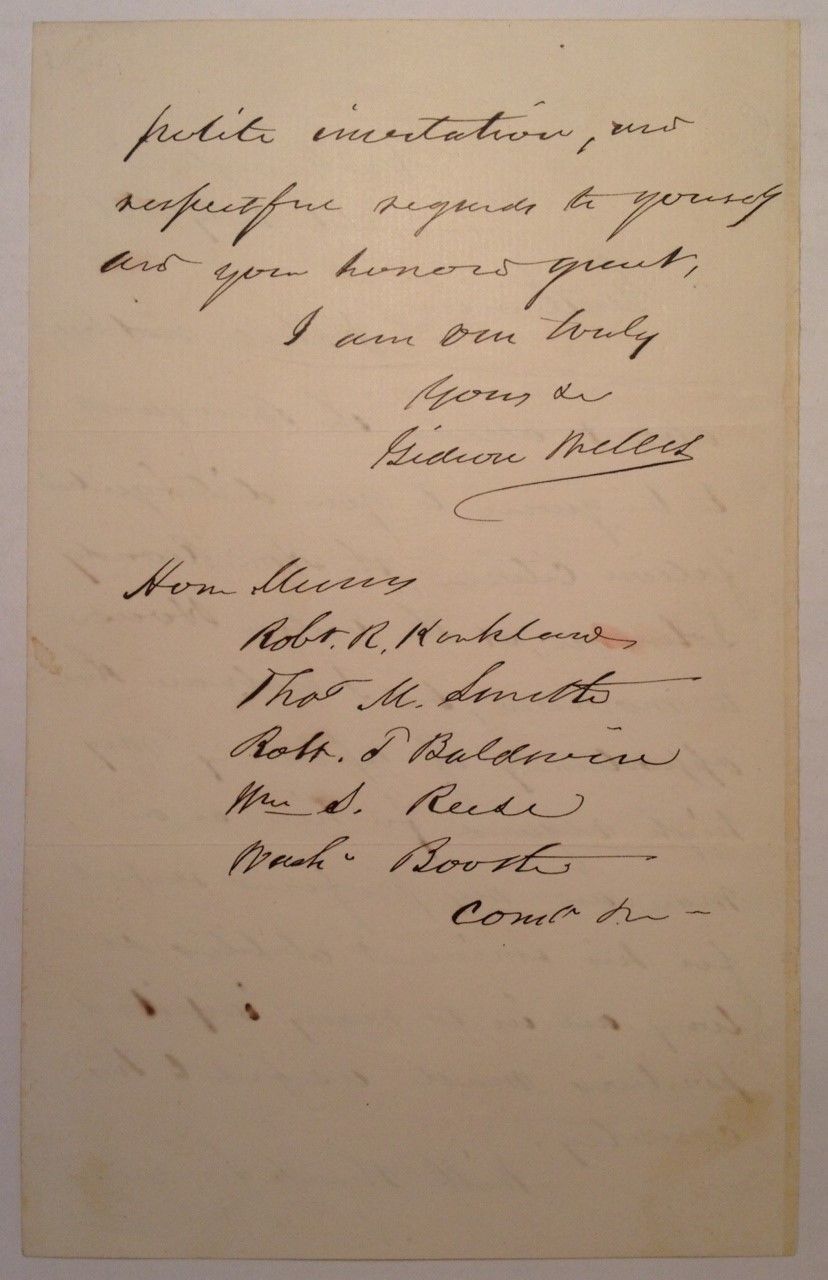 polite invitation, and
respectful regards to yourself
and your honored guest,
I am very truly
Yours &c
Gideon Welles
Hon Messrs
Robt. R. Kirkland
Thos M. Smith
Robt. T Baldwin
Wm S. Reese
Wash. Booth
Comte &c